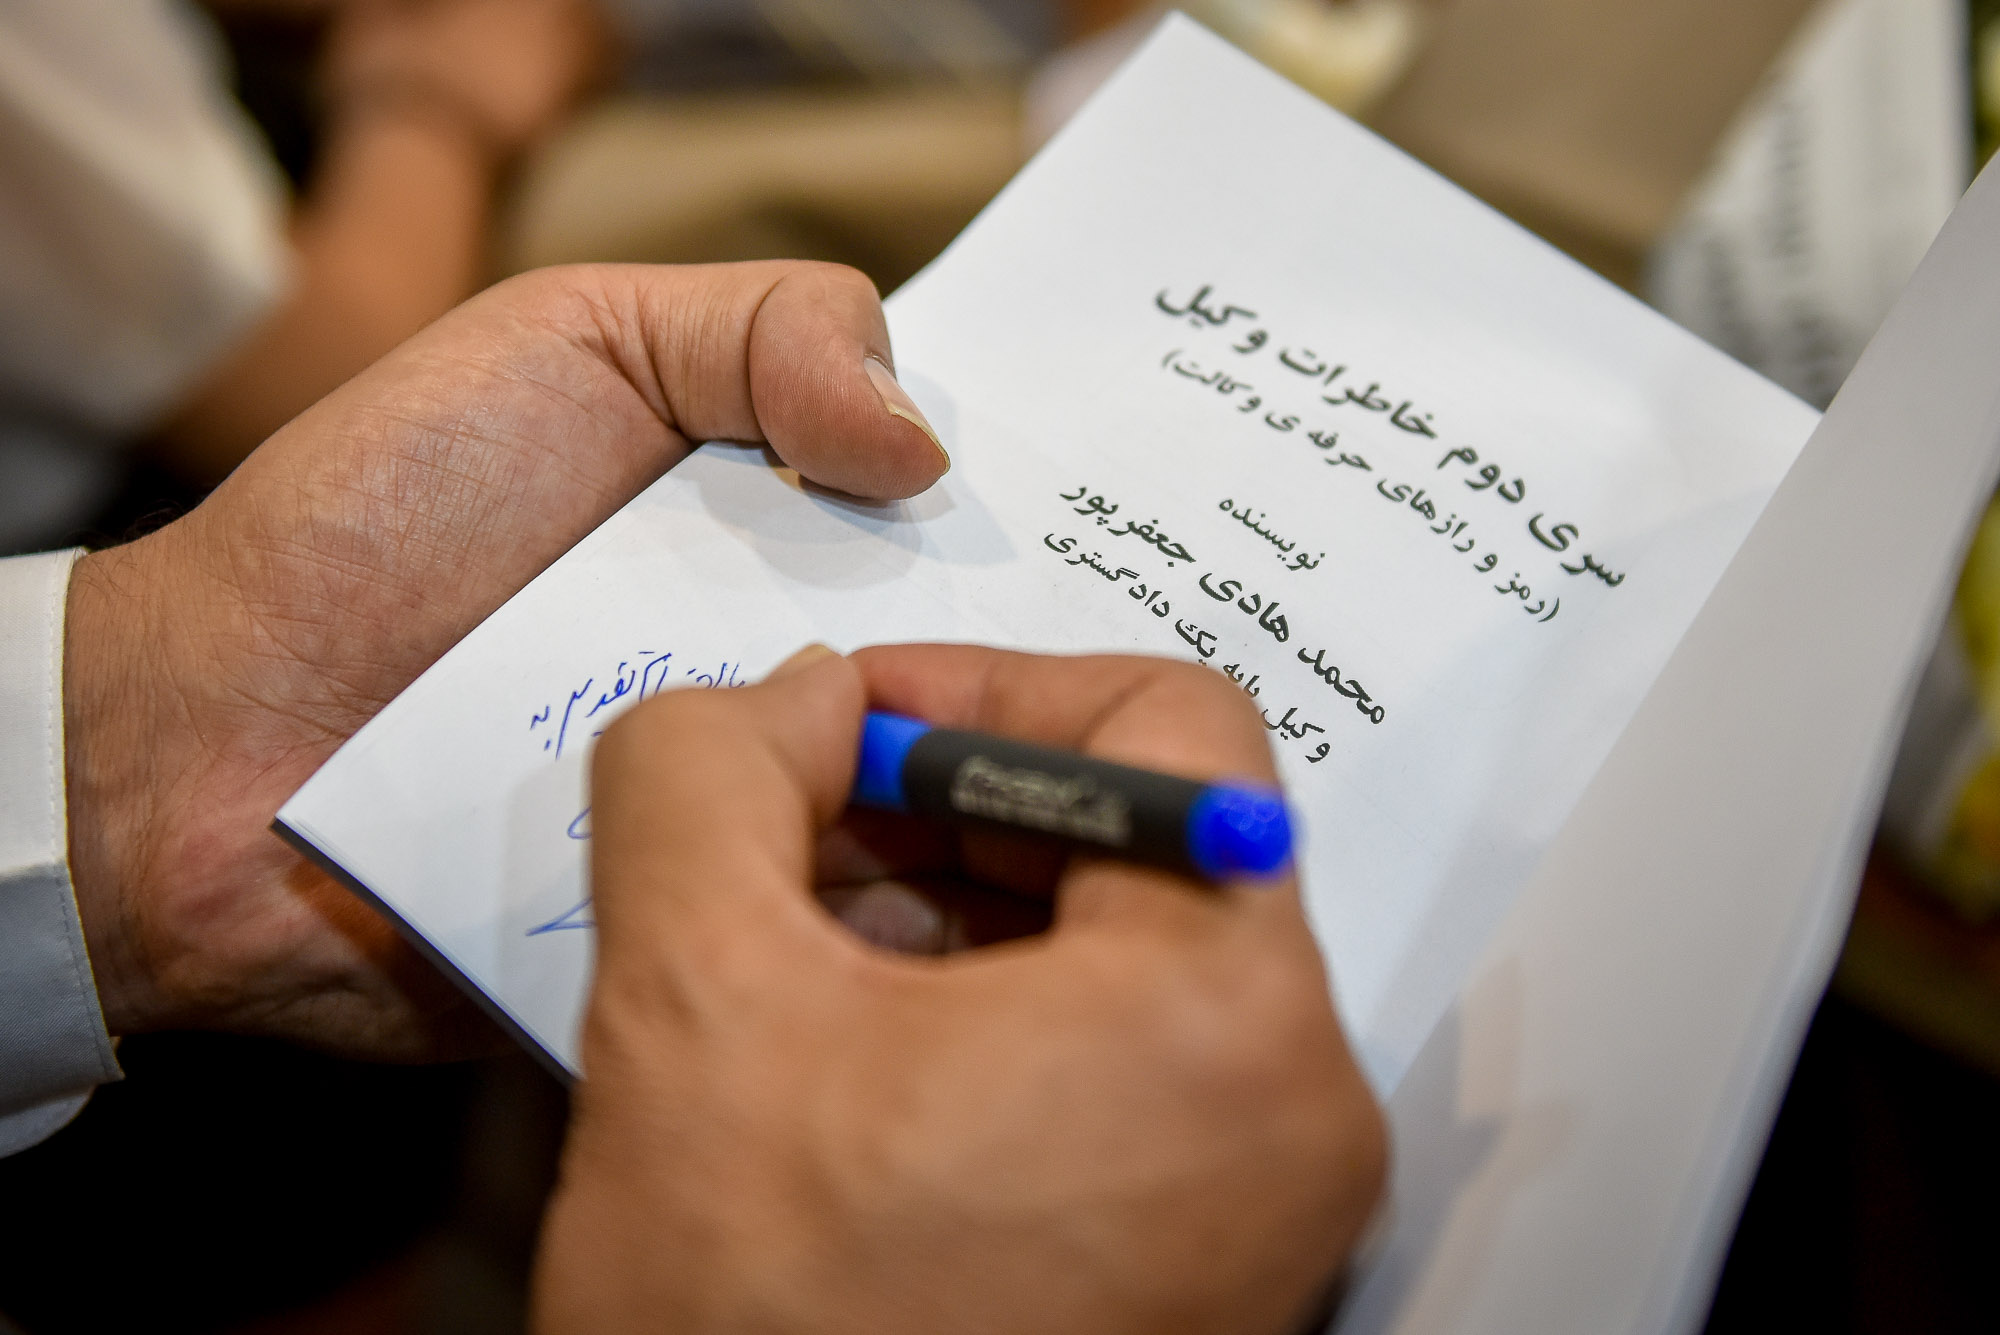 سری دوم خاطرات وکیل
(رمز و رازهای حرفه ی وکالت)
نویسنده
محمد هادی جعفرپور
وکیل پایه یک دادگستری
تقدیم به